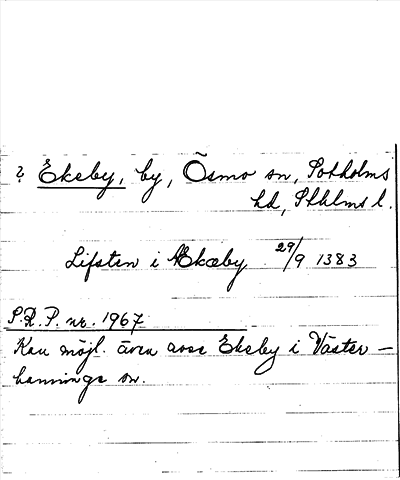 ? Ekeby, by, Ösmo sn, Sotholms
hd, Sthlms l.
Lifsten i Ekæby 29/9 1383
S.R.P. nr. 1967
Kan möjl. även avse Ekeby i Väster-
hanninge sn.